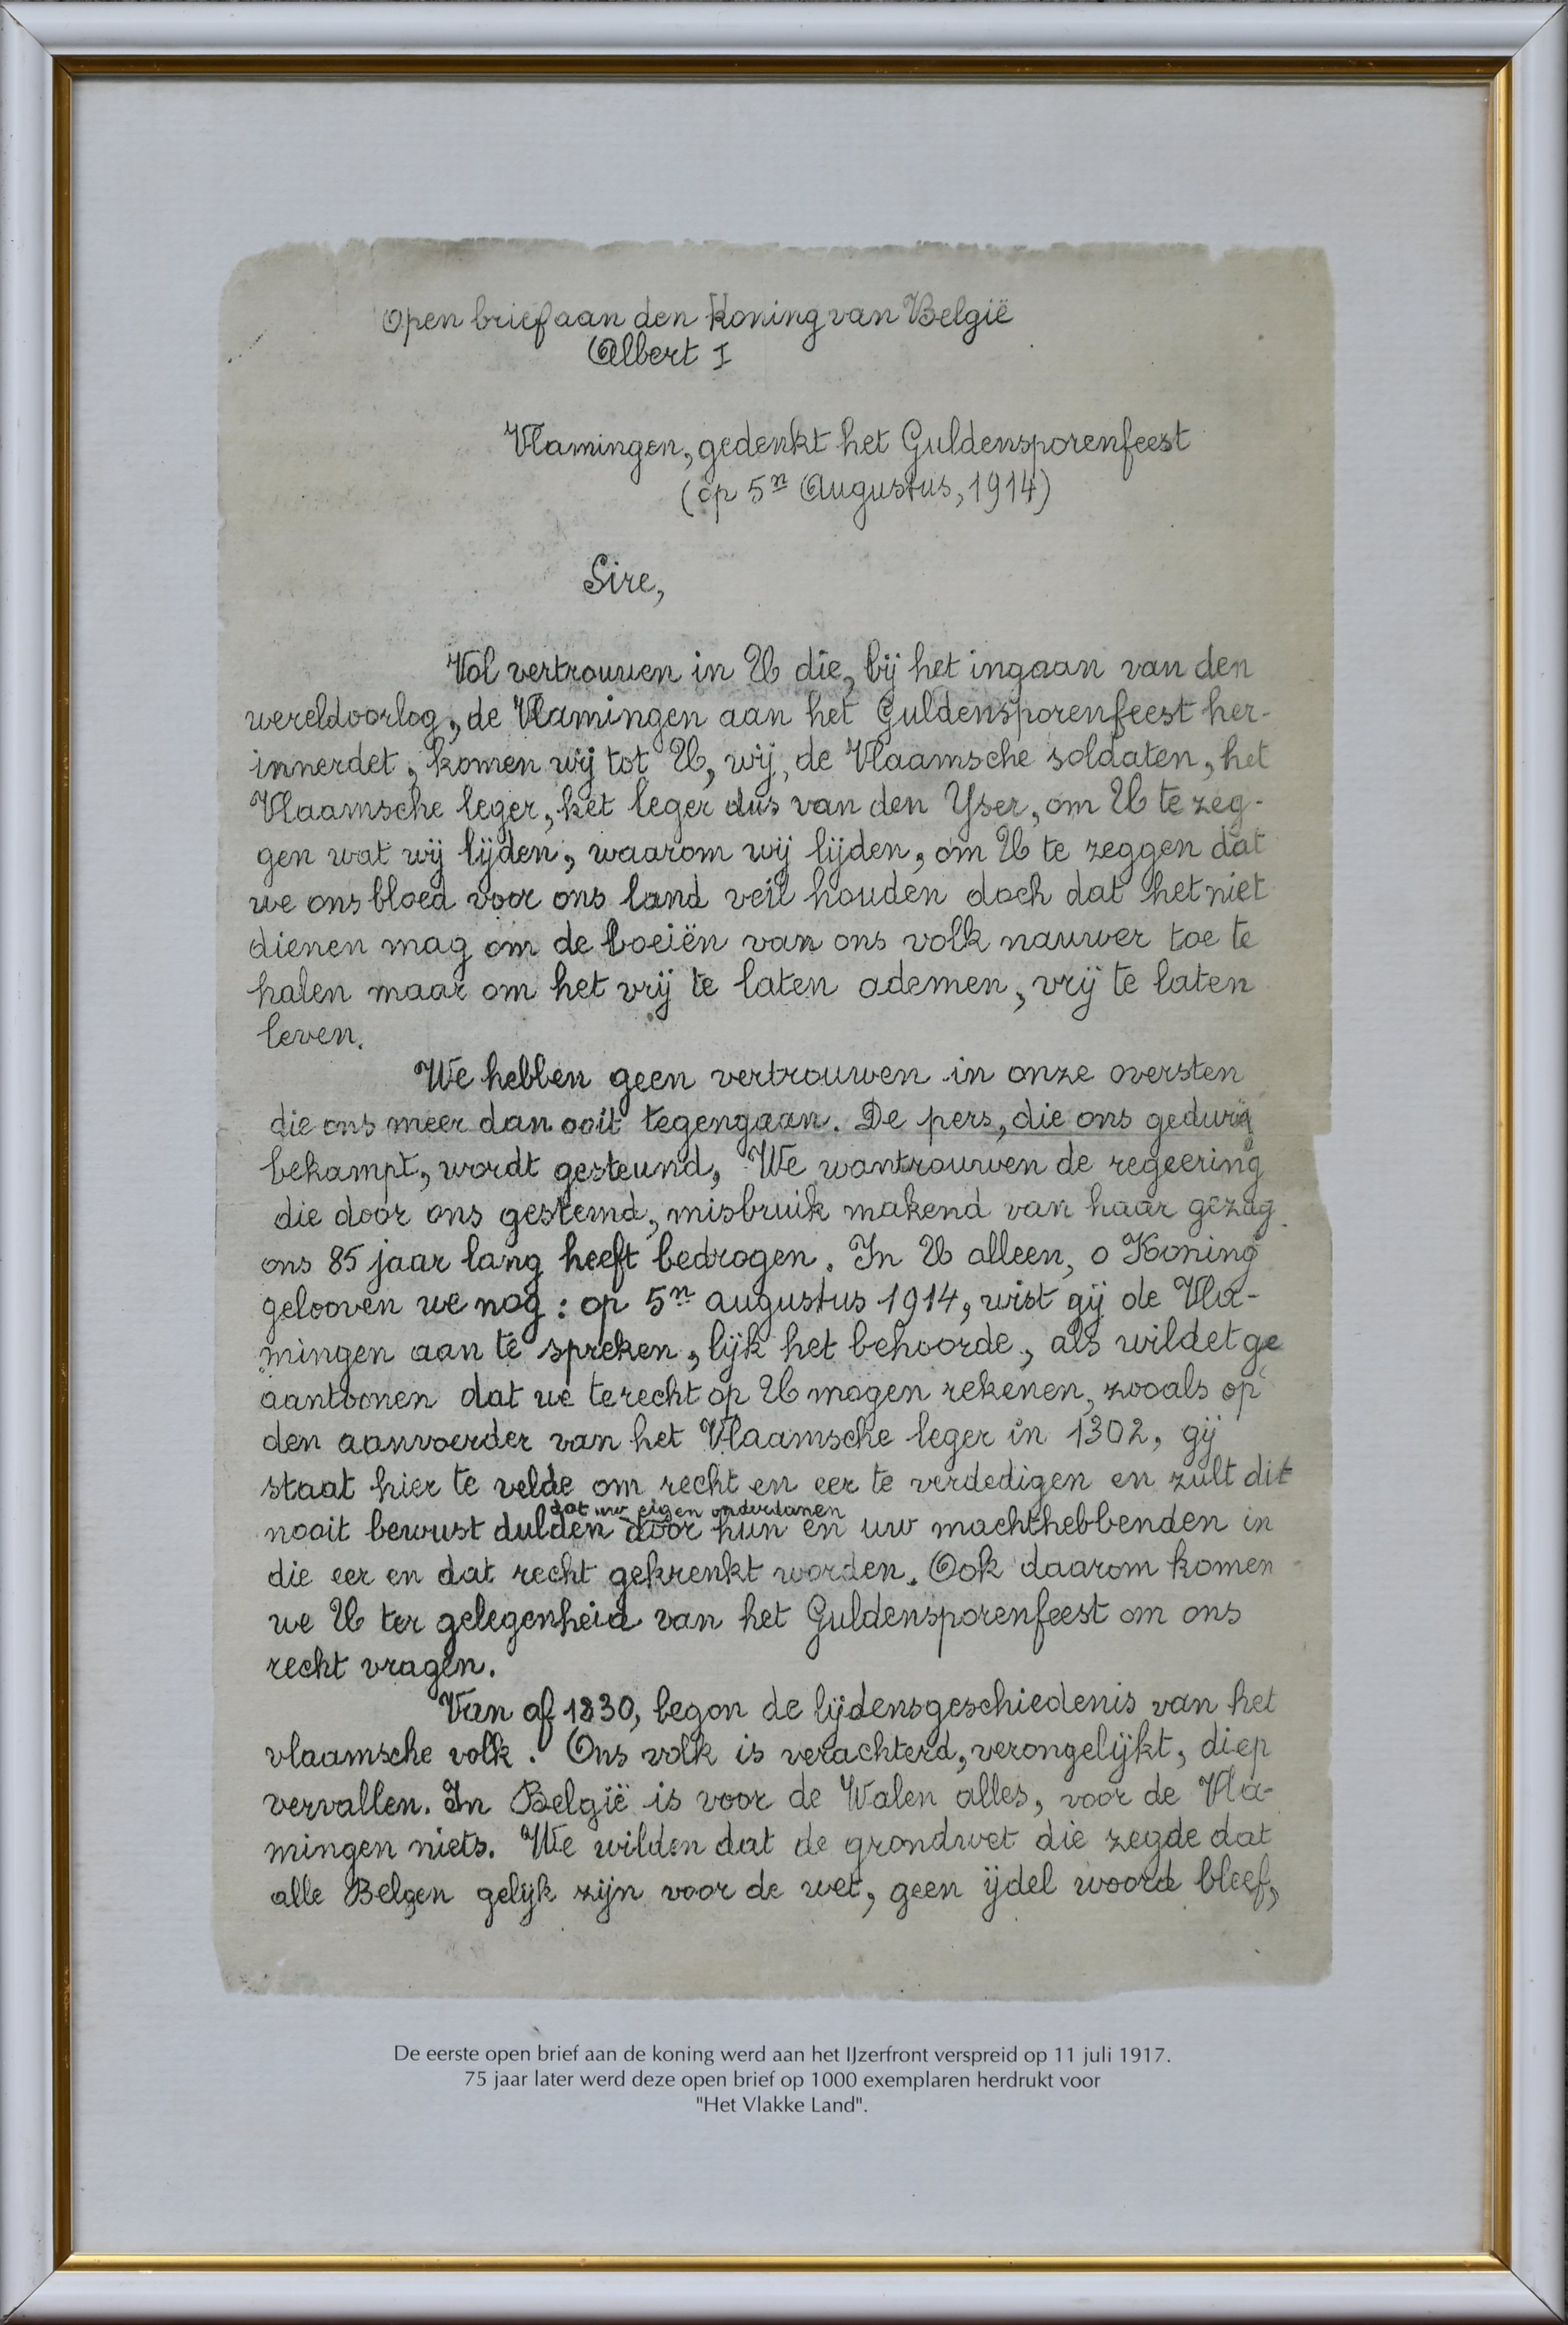 Open brief aan den Koning van België
Albert I
Vlamingen, gedenkt het Guldensporenfeest
(op 5n Augustus, 1914)
Sire,
Vol vertrouwen in U die, bij het ingaan van den
wereldoorlog, de Vlamingen aan het Guldensporenfeest her-
innerdet, komen wij tot U, wij, de Vlaamsche soldaten, het
Vlaamsche leger, het leger dus van den Yser, om U te zeg-
gen wat wij lijden, waarom wij lijden, om U te zeggen dat
we ons bloed voor ons land veil houden doch dat het niet
dienen mag om de boeiën van ons volk nauwer toe te
halen maar om het vrij te laten ademen, vrij te laten
leven.
We hebben geen vertrouwen in onze oversten
die ons meer dan ooit tegengaan. De pers, die ons gedurig
bekampt, wordt gesteund, We wantrouwen de regeering
die door ons gestemd, misbruik makend van haar gezag
ons 85 jaar lang heeft bedrogen. In U alleen, o Koning
gelooven we nog: op 5n augustus 1914, wist gij de Vla-
mingen aan te spreken, lijk het behoorde, als wildet ge
aantoonen dat we terecht op U mogen rekenen, zooals op
den aanvoerder van het Vlaamsche leger in 1302, gij
staat hier te velde om recht en eer te verdedigen en zult dit
dat uw eigen onderdanen
nooit bewust dulden door hun en uw machthebbenden in
die eer en dat recht gekrenkt worden. Ook daarom komen
we U ter gelegenheid van het Guldensporenfeest om ons
recht vragen.
Van af 1830, begon de lijdensgeschiedenis van het
vlaamsche volk. Ons volk is verachterd, verongelijkt, diep
vervallen. In België is voor de Walen alles, voor de Vla-
mingen niets. We wilden dat de grondwet die zegde dat
alle Belgen gelijk zijn voor de wet, geen ijdel woord bleef,
De eerste open brief aan de koning werd aan het IJzerfront verspreid op 11 juli 1917.
75 jaar later werd deze open brief op 1000 exemplaren herdrukt voor
"Het Vlakke Land".